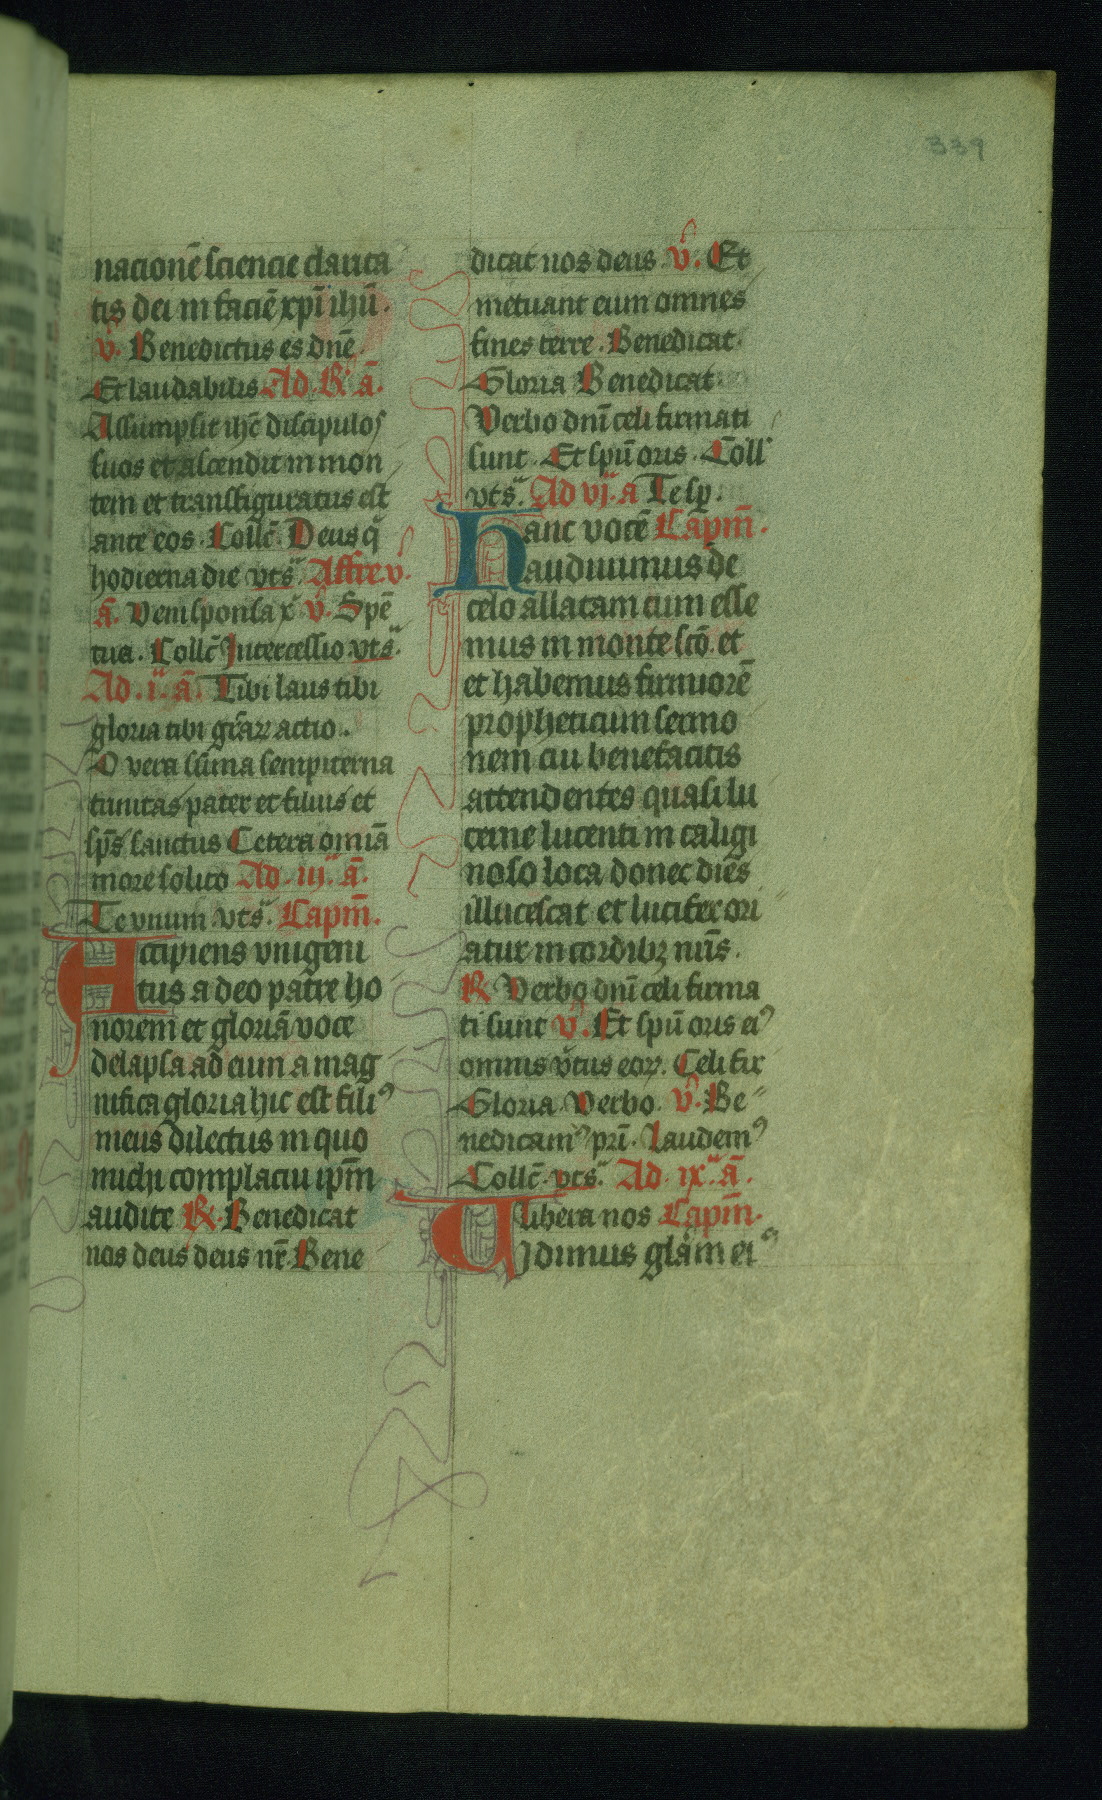 339
nacionē sciencie clarita
tis dei in faciē xpī ihū.
v̄. Benedictus es dn̄e.
Et laudabilis Ad. B. ā.
Assumpsit ihc̄ discipulos
suos et ascendit in mon
tem et transfiguratus est
ante eos. Collc̄. Deus q̄
hodierna die vts. Affre v.
ā. Veni sponsa x v̄. Spē
tua. Collc̄ Intercessio vts.
Ad .i. ā. Tibi laus tibi
gloria tibi grāꝝ actio.
O vera sūma sempiterna
trinitas pater et filius et
sp̄s sanctus Cetera omīa
more solito Ad .iij. ā.
Te vnum vts. Capm̄.
Accipiens vnigeni
tus a deo patre ho
norem et gloriā voce
delapsa ad eum a mag
nifica gloria hic est filiꝰ
meus dilectus in quo
michi complacui ipm̄
audite ℟. Benedicat
nos deus deus nr̄. Bene
dicat nos deus. v̄. Et
metuant eum omnes
fines terre. Benedicat.
Gloria Benedicat.
Verbo dnī celi firmati
sunt. Et spū oris. Coll̄
vts. Ad vj. a Te sp.
hanc vocē Capm̄.
audiuimus de
celo allatam cum esse
mus in monte scō. et
et habemus firmiorē
propheticum sermo
nem cui benefacitis
attendentes quasi lu
cerne lucenti in caligi
noso loca donec diēs
illucescat et lucifer ori
atur in cordibꝫ nrīs.
℟ Verbo dnī celi firma
ti sunt v̄. Et spū oris eiꝰ
omnis v̄tus eoꝝ. Celi fir
Gloria Verbo. v̄. Be-
nedicamꝰ prī. Laudemꝰ
Collc̄. vts. Ad .ix. ā.
Libera nos Capm̄.
Vidimus glām eiꝰ